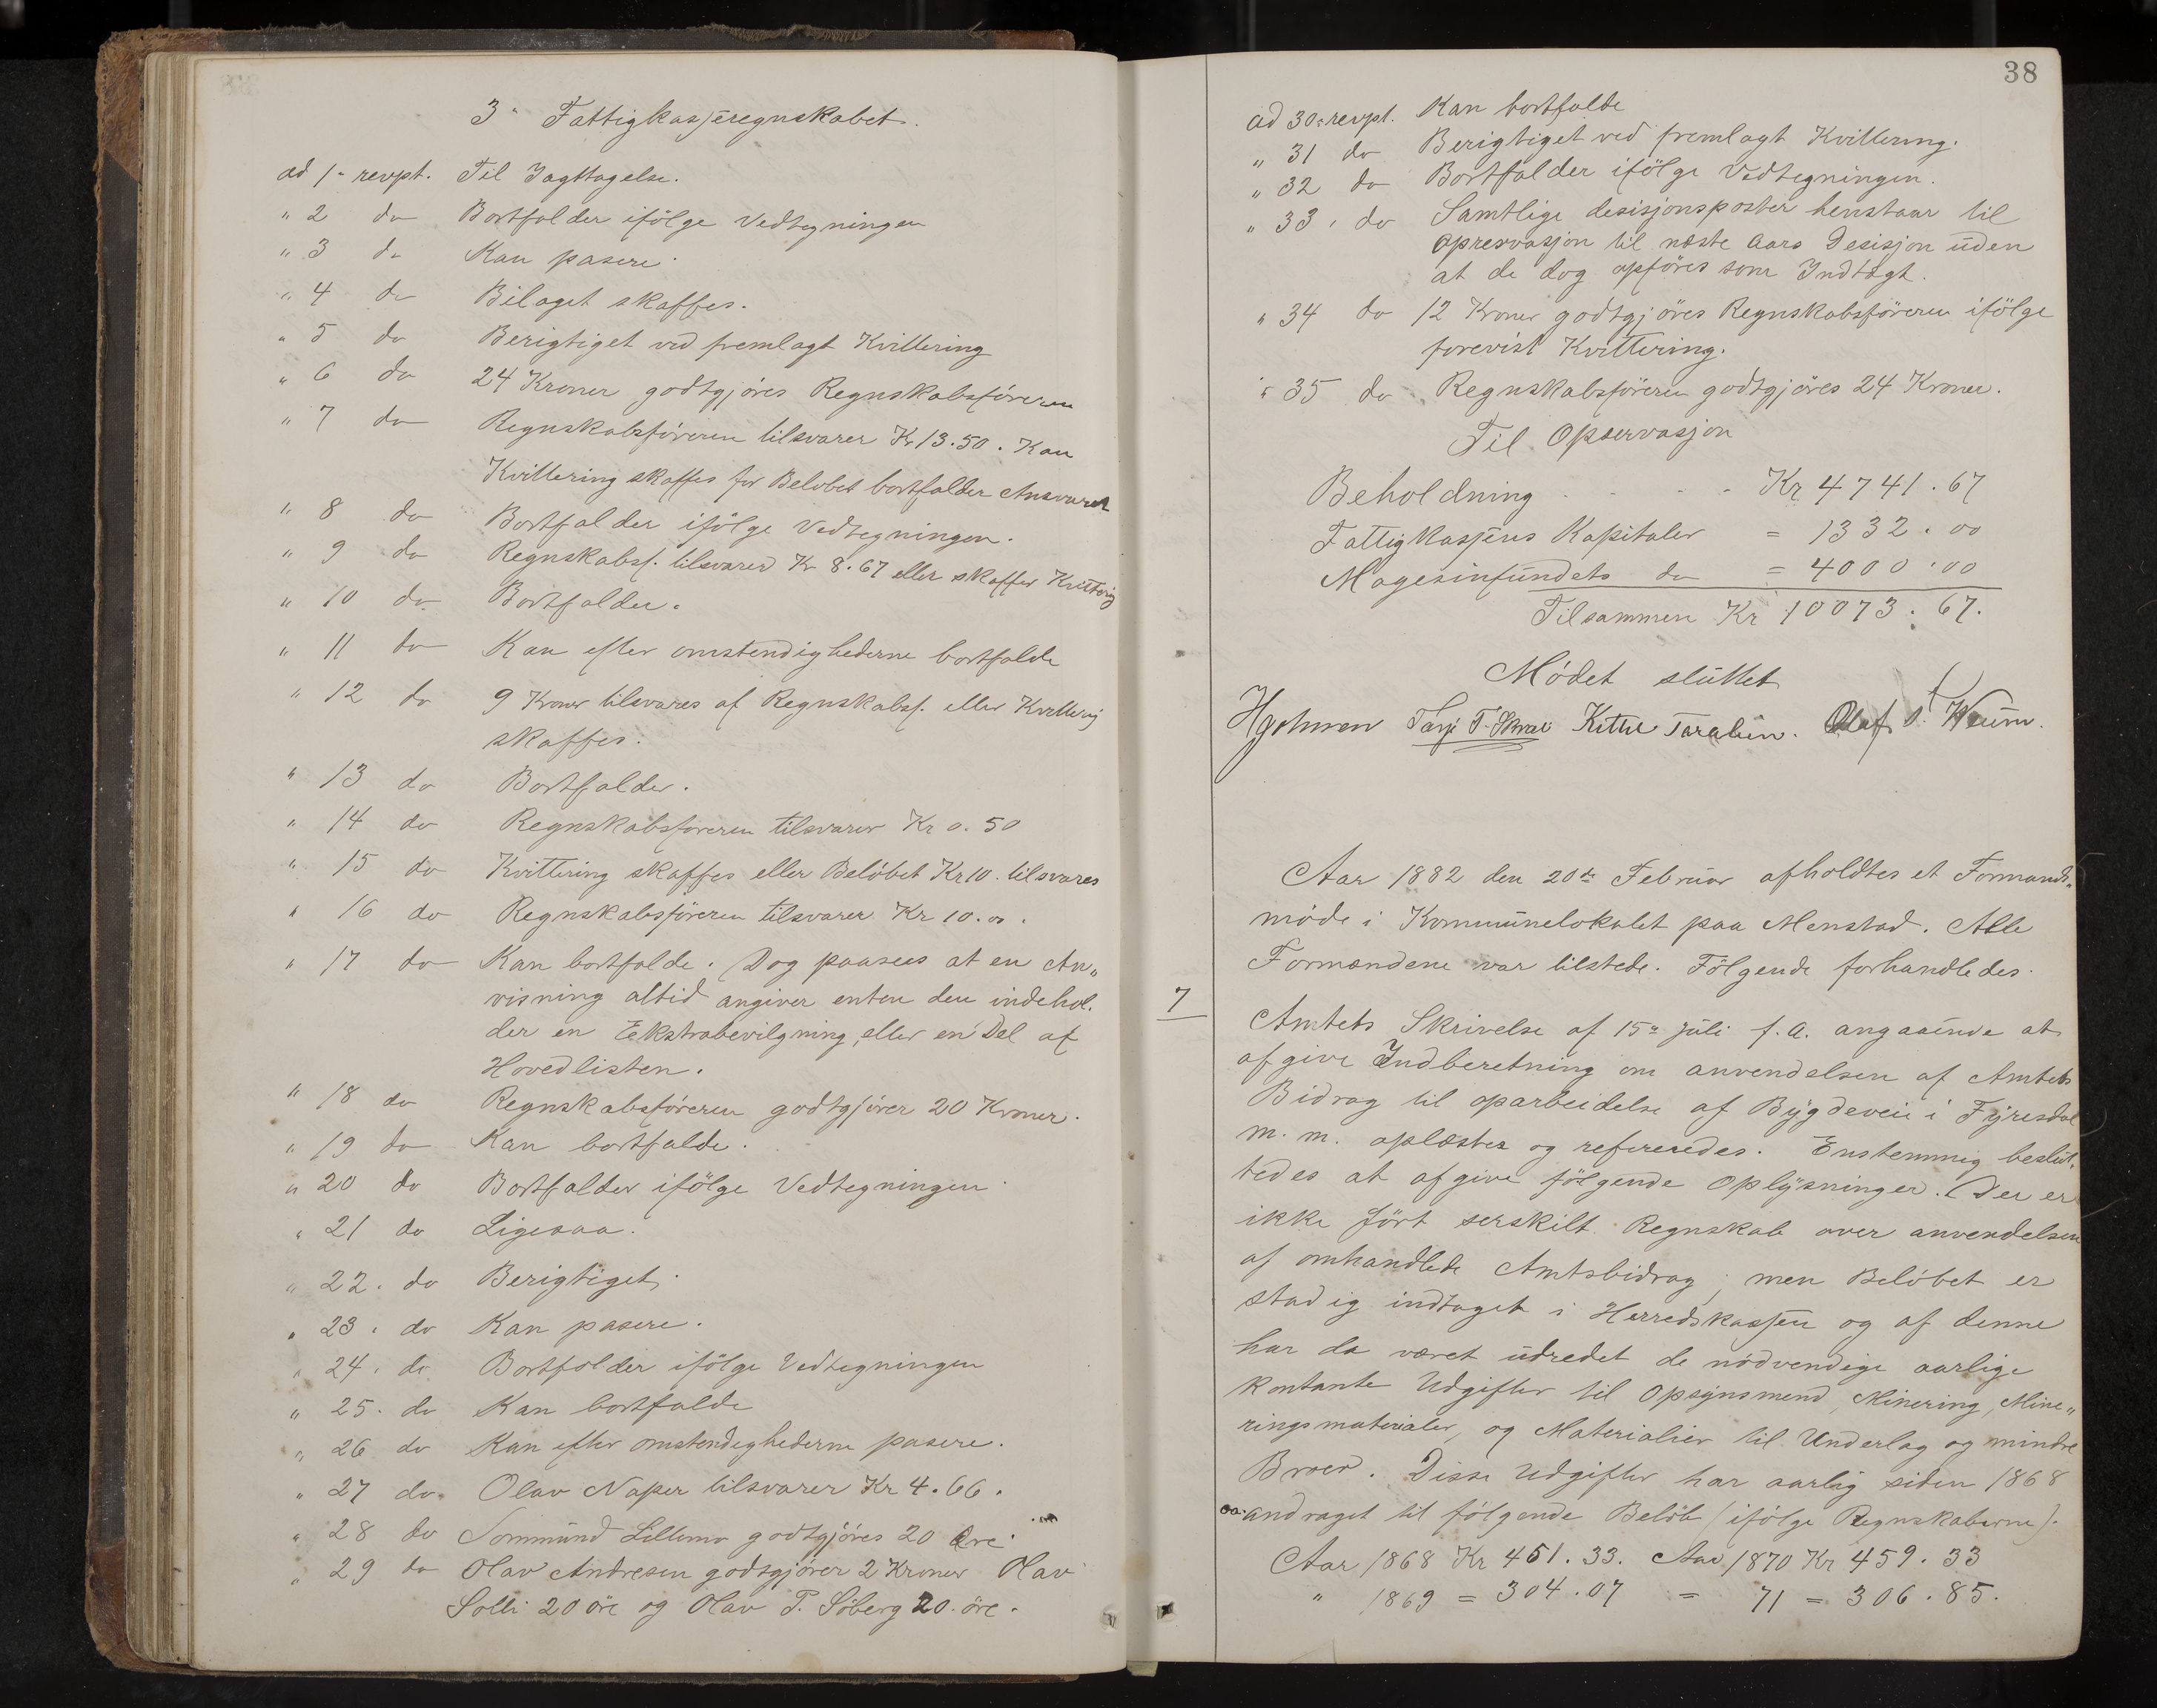 3. Fattigkasseregnskabet.
ad 1. revpt. Til Iagttagelse.
" 2 do Bortfalder ifölge Vedtegningen
" 3 do Kan pasere.
" 4 do Bilaget skaffes.
" 5 do Berigtiget ved fremlagt Kvittering
" 6 do 24 Kroner godtgjöres Regnskabsföreren
" 7 do Regnskabsföreren tilsvarer Kr 13.50. Kan
Kvittering skaffes for Belöbet bortfalder Ansvaret
" 8 do Bortfalder ifölge Vedtegningen.
" 9 do Regnskabsf. tilsvarer Kr 8.67 eller skaffer Kvittering
" 10 do Bortfalder.
" 11 do Kan efter omstendighederne bortfalde
" 12 do 9 Kroner tilsvares af Regnskabsf. eller Kvittering
skaffes.
" 13 do Bortfalder.
" 14 do Regnskabsföreren tilsvarer Kr 0.50
" 15 do Kvittering skaffes eller Belöbet Kr 10. tilsvares
" 16 do Regnskabsföreren tilsvarer Kr 10.00.
" 17 do Kan bortfalde. Dog paasees at en An„
visning altid angiver enten den indehol.
der en Ekstrabevilgning, eller en Del af
Hovedlisten.
" 18 do Regnskabsföreren godtgjörer 20 Kroner.
" 19 do Kan bortfalde.
" 20 do Bortfalder ifölge Vedtegningen
" 21 do Ligesaa.
" 22. do Berigtiget.
" 23. do Kan pasere.
" 24. do Bortfolder ifölge Vedtegningen
" 25. do Kan bortfalde
" 26 do Kan efter omstendeghederne pasere.
" 27 do Olav Naper tilsvarer Kr 4.66.
" 28 do Sommund Lillemo godtgjöres 20 Öre.
" 29 do Olav Andresen godtgjörer 2 Kroner Olav
Solli 20 öre og Olav T. Söberg 20 öre.
38
ad 30. revpt. Kan bortfalde
" 31 do Berigtiget ved fremlagt Kvittering.
" 32 do Bortfalder ifölge Vedtegningen.
" 33. do Samtlige desisjonsposter henstaar til
opresvasjon til næste Aars Desisjon uden
at de dog opföres som Indtægt.
" 34 do 12 Kroner godtgjöres Regnskabsföreren ifölge
forevist Kvittering.
" 35 do Regnskabsföreren godtgjöres 24 Kroner.
Til Opservasjon
Beholdning - - - Kr 4741.67
Fattigkassens Kapitaler = 1332.00
Magesinfundets do = 4000.00
Tilsammen Kr 10073.67.
Mödet sluttet
Kittil Taraldn. Olaf
Aar 1882 den 20de Februar afholdtes et Formands„
möde i Kommunelokalet paa Menstad. Alle
Formændene var tilstede. Fölgende forhandledes.
7
Amtets Skrivelse af 15. Juli f. a. angaaende at
afgive Indberetning om anvendelsen af Amtets
Bidrag til oparbeidelse af Bygdeveie i Fyresdal
m. m. oplæstes og refereredes. Enstemmig beslut„
tedes at afgive fölgende Oplysninger. Der er
ikke fört serskilt Regnskab over anvendelsen
af omhandlede Amtsbidrag; men Belöbet er
stadig indtaget i Herredskassen og af denne
har da været udredet de nödvendige aarlige
kontante Udgifter til Opsynsmend, Minering, Mine„
ringsmaterialer, og Materialier til Underlag og mindre
Broer. Disse Udgifter har aarlig siden 1868
andraget til fölgende Belöb (ifölge Regnskaberne).
Aar 1868 Kr 451.33. Aar 1870 Kr 459.33
" 1869 = 304.07 = 71 = 306.85.